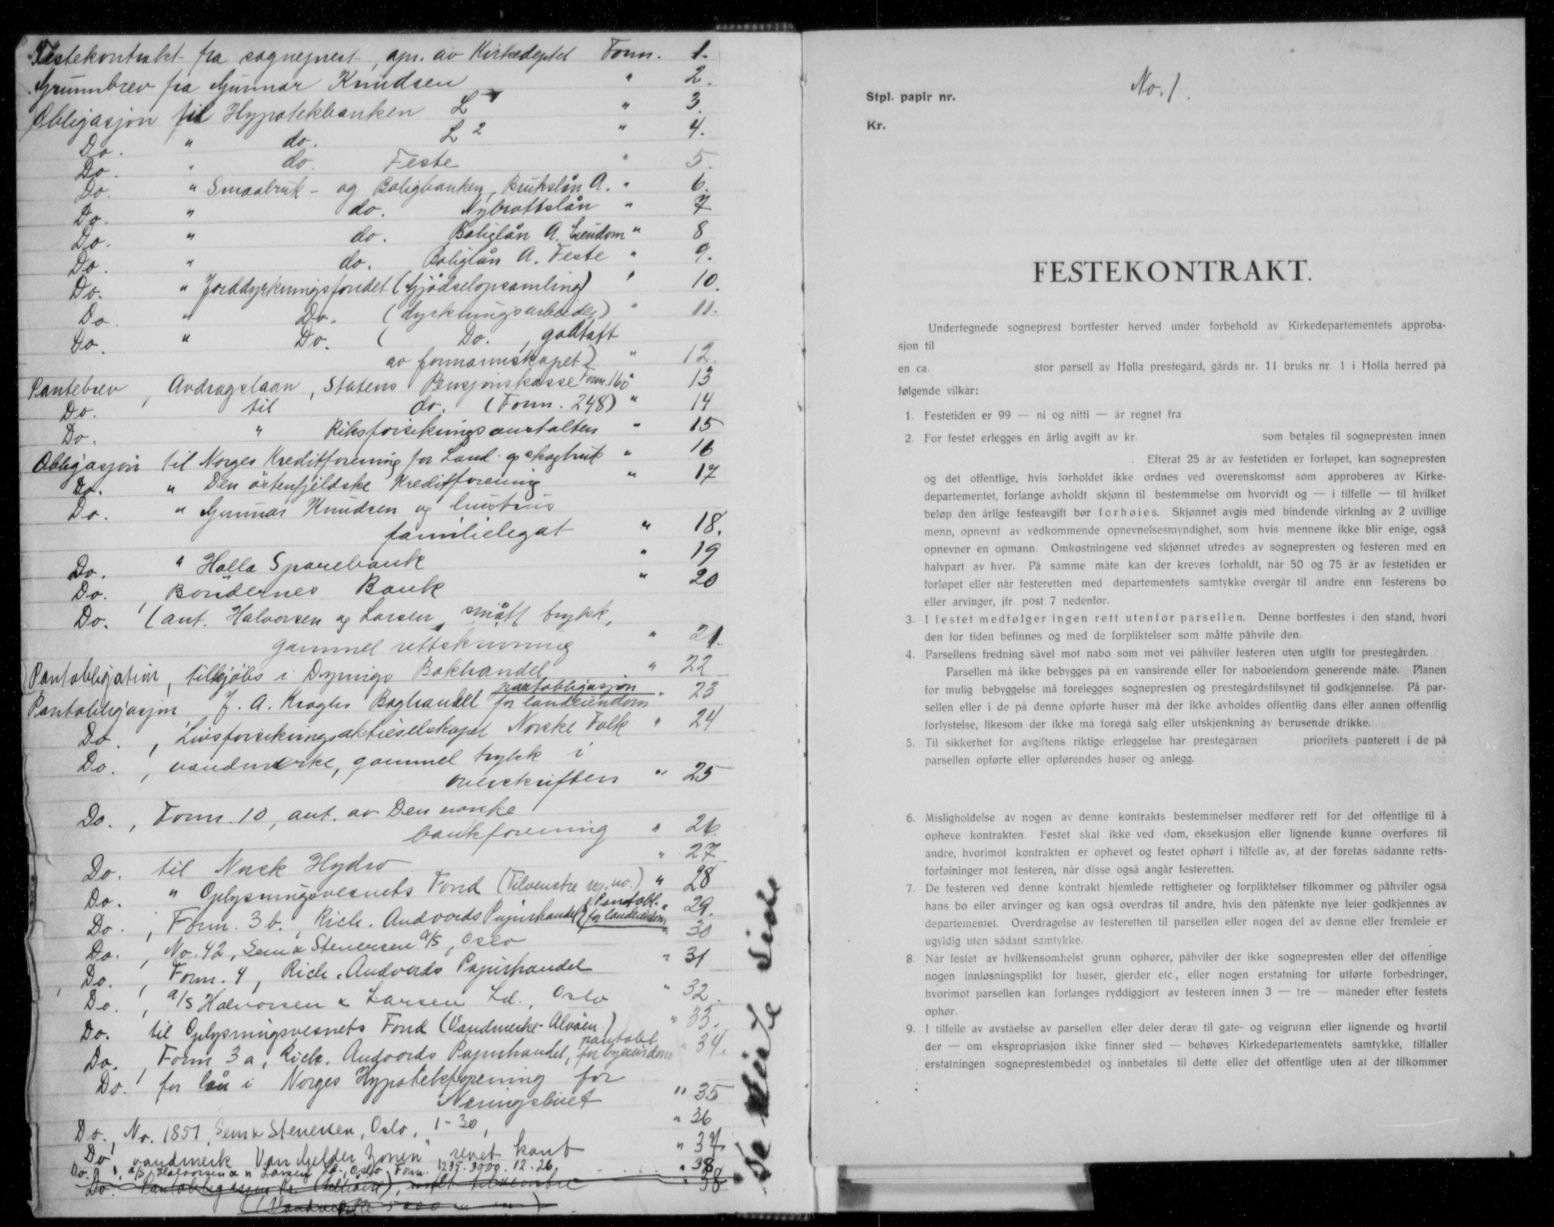 Festekontrakt fra sogneprest, apr. av Kirkedeptet Form. 1.
Grunnbrev fra Gunnar Knudsen " 2.
Obligasjon til Hypotekbanken L " 3.
Do. " do. L 2 " 4.
Do. " do. Feste " 5.
Do. " Smaabruk- og Boligbanken, Brukslån A. " 6.
Do. " do. Nybrottslån " 7
Do. " do. Boliglån A. Eiendom " 8
Do. " do. Boliglån A. Feste " 9.
Do. " Jorddyrkningsfondet (Gjødselopsamling) " 10.
Do. " Do. (dyrkningsarbeider) " 11.
Do. " Do. ( Do. , godtatt
av formannskapet) " 12.
Pantebrev, Avdragslaan, Statens Pensjonskasse Form. 160 " 13
Do. til do. (Form. 248) " 14
Do. " Riksforsikringsanstalten " 15
Obligasjon til Norges Kreditforening for Land- og skogbruk " 16
Do. " Den østenfjeldske Kreditforening " 17
Do. " Gunnar Knudsen og hustrus
familielegat " 18.
Do. " Holla Sparebank " 19
Do. , Bøndernes Bank " 20
Do. , (ant. Halvorsen og Larsen, smått trykk,
gammel rettskrivning " 21.
Pantobligation, tilkjøbs i Dyrings Bokhandel " 22
Pantobligasjon J. A. Kroghs Boghandel pantobligasjon for landeiendom " 23
Do. , Livsforsikringsaktieselskapet Norske Folk " 24
Do. , vandmerke, gammel trykk i
overskriften " 25
Do. , Form. 10, ant. av Den norske
bankforening " 26.
Do. til Norsk Hydro " 27
Do. " Oplysningsvesnets Fond (Tilvenstre no.) " 28
Do. , Form. 3 b., Rich. Andvords Papirhandel (Pantobl. for landeiendom " 29.
Do. , No. 42, Sem & Stenersen A/S, Oslo " 30
Do. , Form. 4, Rich. Andvords Papirhandel " 31
Do. , A/S Halvorsen & Larsen Ld., Oslo " 32.
Do. til Oplysningsvesnets Fond (Vandmerke-Alvøen) " 33.
Do. , Form 3 a, Rich. Andvords Papirhandel, pantobl. for byeiendom " 34.
Do. , for lån i Norges Hypotekforening for
Næringslivet " 35
Do. , No. 1851, Sem & Stenersen, Oslo, 1-30, " 36
Do , vandmerk Van Gelder Zonen, revet kant " 37
Do. , A/S Halvorsen & Larsen Ld., Oslo, Form. 1235. 3000. 12.26. " 38
Do. Pantobligasjon " 38
(Vandmerke
Se siste side
No. 1.
Stpl. papir nr.
Kr.
FESTEKONTRAKT.
Undertegnede sogneprest bortfester herved under forbehold av Kirkedepartementets approba-
sjon til
en ca. stor parsell av Holla prestegård, gårds nr. 11 bruks nr. 1 i Holla herred på
følgende vilkår:
1. Festetiden er 99 — ni og nitti — år regnet fra
2. For festet erlegges en årlig avgift av kr. som betales til sognepresten innen
. Efterat 25 år av festetiden er forløpet, kan sognepresten
og det offentlige, hvis forholdet ikke ordnes ved overenskomst som approberes av Kirke-
departementet, forlange avholdt skjønn til bestemmelse om hvorvidt og — i tilfelle — til hvilket
beløp den årlige festeavgift bør forhøies. Skjønnet avgis med bindende virkning av 2 uvillige
menn, opnevnt av vedkommende opnevnelsesmyndighet, som hvis mennene ikke blir enige, også
opnevner en opmann. Omkostningene ved skjønnet utredes av sognepresten og festeren med en
halvpart av hver. På samme måte kan der kreves forholdt, når 50 og 75 år av festetiden er
forløpet eller når festeretten med departementets samtykke overgår til andre enn festerens bo
eller arvinger, jfr. post 7 nedenfor.
3. I festet medfølger ingen rett utenfor parsellen. Denne bortfestes i den stand, hvori
den for tiden befinnes og med de forpliktelser som måtte påhvile den.
4. Parsellens fredning såvel mot nabo som mot vei påhviler festeren uten utgift for prestegården.
Parsellen må ikke bebygges på en vansirende eller for naboeiendom generende måte. Planen
for mulig bebyggelse må forelegges sognepresten og prestegårdstilsynet til godkjennelse. På par-
sellen eller i de på denne opførte huser må der ikke avholdes offentlig dans eller annen offentlig
forlystelse, likesom der ikke må foregå salg eller utskjenkning av berusende drikke.
5. Til sikkerhet for avgiftens riktige erleggelse har prestegårnen prioritets panterett i de på
parsellen opførte eller opførendes huser og anlegg.
6. Misligholdelse av nogen av denne kontrakts bestemmelser medfører rett for det offentlige til å
opheve kontrakten. Festet skal ikke ved dom, eksekusjon eller lignende kunne overføres til
andre, hvorimot kontrakten er ophevet og festet ophørt i tilfelle av, at der foretas sådanne retts-
forføininger mot festeren, når disse også angår festeretten.
7. De festeren ved denne kontrakt hjemlede rettigheter og forpliktelser tilkommer og påhviler også
hans bo eller arvinger og kan også overdras til andre, hvis den påtenkte nye leier godkjennes av
departementet. Overdragelse av festeretten til parsellen eller nogen del av denne eller fremleie er
ugyldig uten sådant samtykke.
8. Når festet av hvilkensomhelst grunn ophører, påhviler der ikke sognepresten eller det offentlige
nogen innløsningsplikt for huser, gjerder etc., eller nogen erstatning for utførte forbedringer,
hvorimot parsellen kan forlanges ryddiggjort av festeren innen 3 — tre — måneder efter festets
ophør.
9. I tilfelle av avståelse av parsellen eller deler derav til gate- og veigrunn eller lignende og hvortil
der — om ekspropriasjon ikke finner sted — behøves Kirkedepartementets samtykke, tilfaller
erstatningen sogneprestembedet og innbetales til dette eller det offentlige uten at der tilkommer